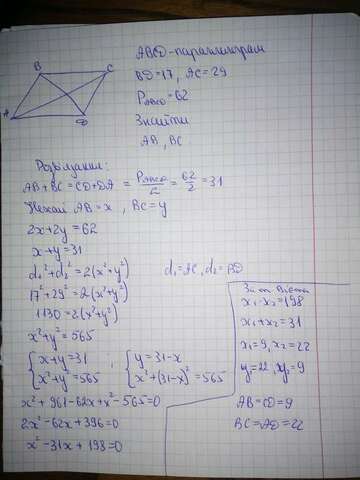 B
C
A
D
ABCD-паралелограм
BD=17, AC=29
P_ABCD=62
Знайти
AB, BC
Розв'язання:
AB+BC=CD+DA = P_ABCD/2 = 62/2 = 31
Нехай AB=x, BC=y
2x+2y=62
x+y=31
d₁²+d₂²=2(x²+y²) d₁=AC, d₂=BD
17²+29²=2(x²+y²)
1130=2(x²+y²)
x²+y²=565
{x+y=31 ; {y=31-x
{x²+y²=565 {x²+(31-x)²=565
x²+961-62x+x²-565=0
2x²-62x+396=0
x²-31x+198=0
За т. Вієта
x₁·x₂=198
x₁+x₂=31
x₁=9, x₂=22
y₁=22, y₂=9
AB=CD=9
BC=AD=22